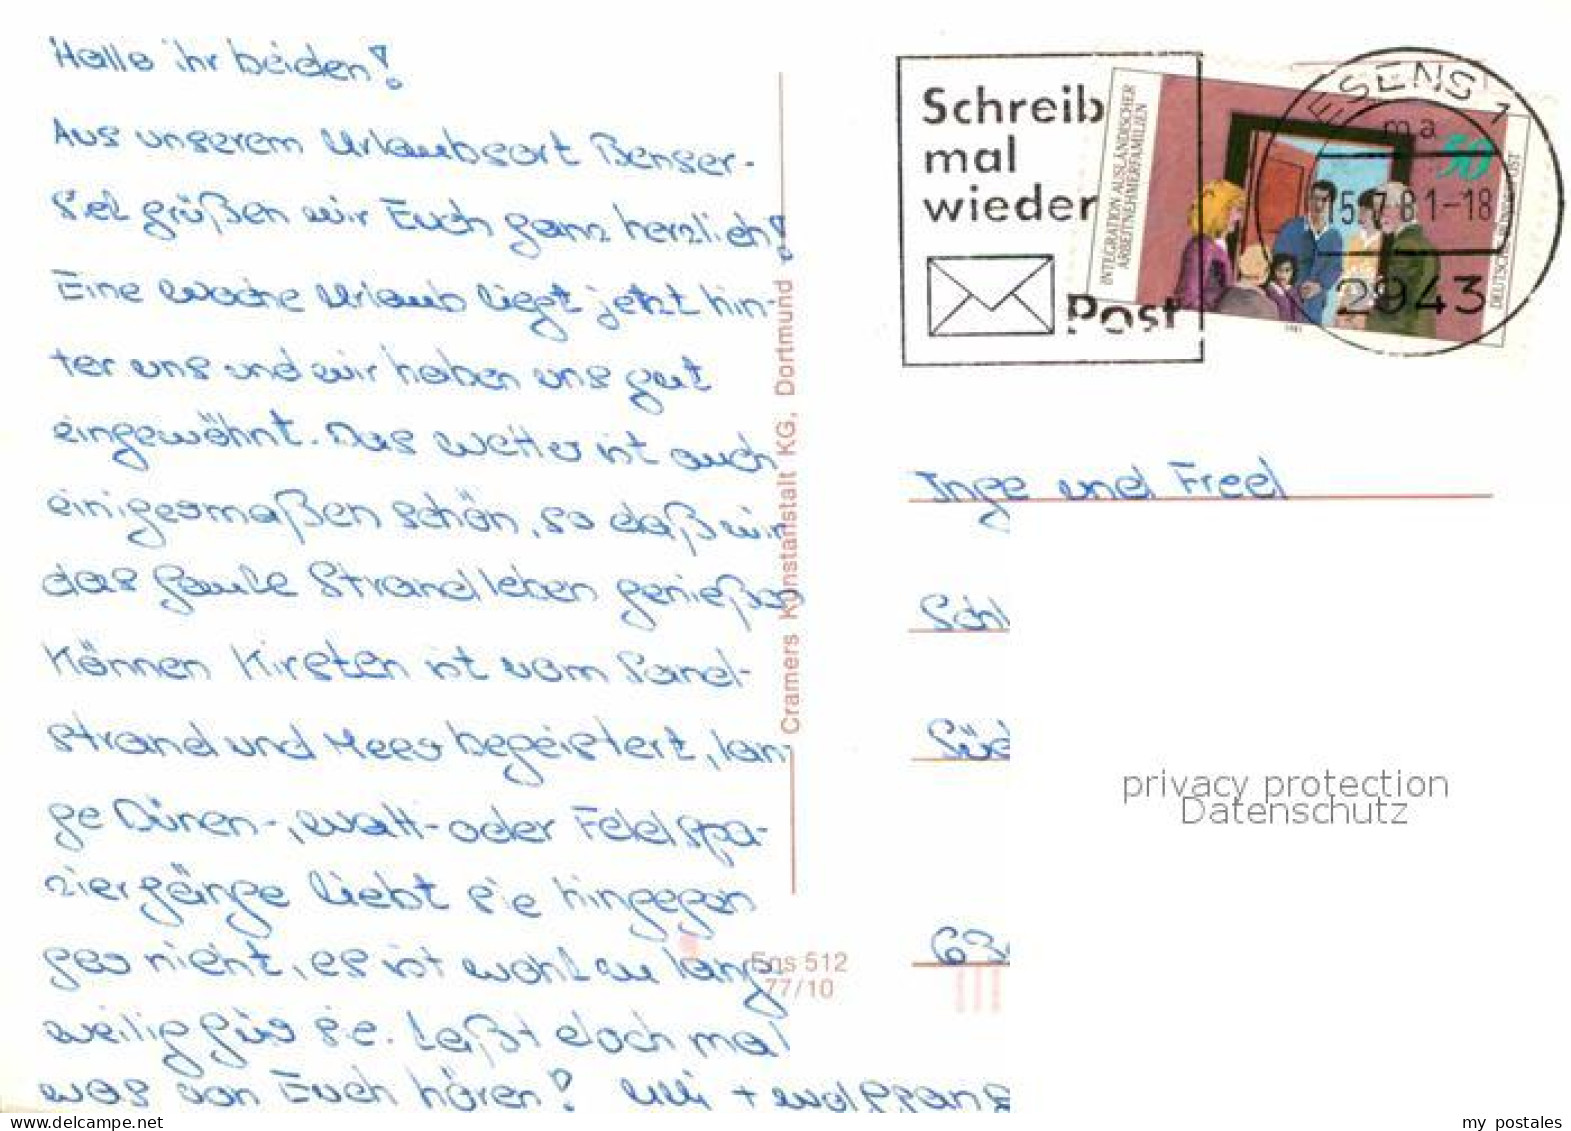 Hallo ihr beiden!
Aus unserem Urlaubsort Benser-
siel grüßen wir Euch ganz herzlich!
Eine Woche Urlaub liegt jetzt hin-
ter uns und wir haben uns gut
eingewöhnt. Das Wetter ist auch
einigermaßen schön, so daß wir
das faule Strandleben genießen
können Kirsten ist vom Sand-
strand und Meer begeistert, lan-
ge Dünen-, Watt- oder Feldspa-
ziergänge liebt sie hingegen
gar nicht, es ist wohl zu lang
weilig für sie. Laßt doch mal
was von Euch hören! Ulli + Wolfgang
Cramers Kunstanstalt KG, Dortmund
Ens 512
77/10
Schreib
mal
wieder
Post
INTEGRATION AUSLÄNDISCHER
ARBEITNEHMERFAMILIEN
50
DEUTSCHE BUNDESPOST
1981
ESENS 1
ma
15.-7.81-18
2943
Inge und Fred
Schl
Süd
63
privacy protection
Datenschutz
delcampe.net
my_postales